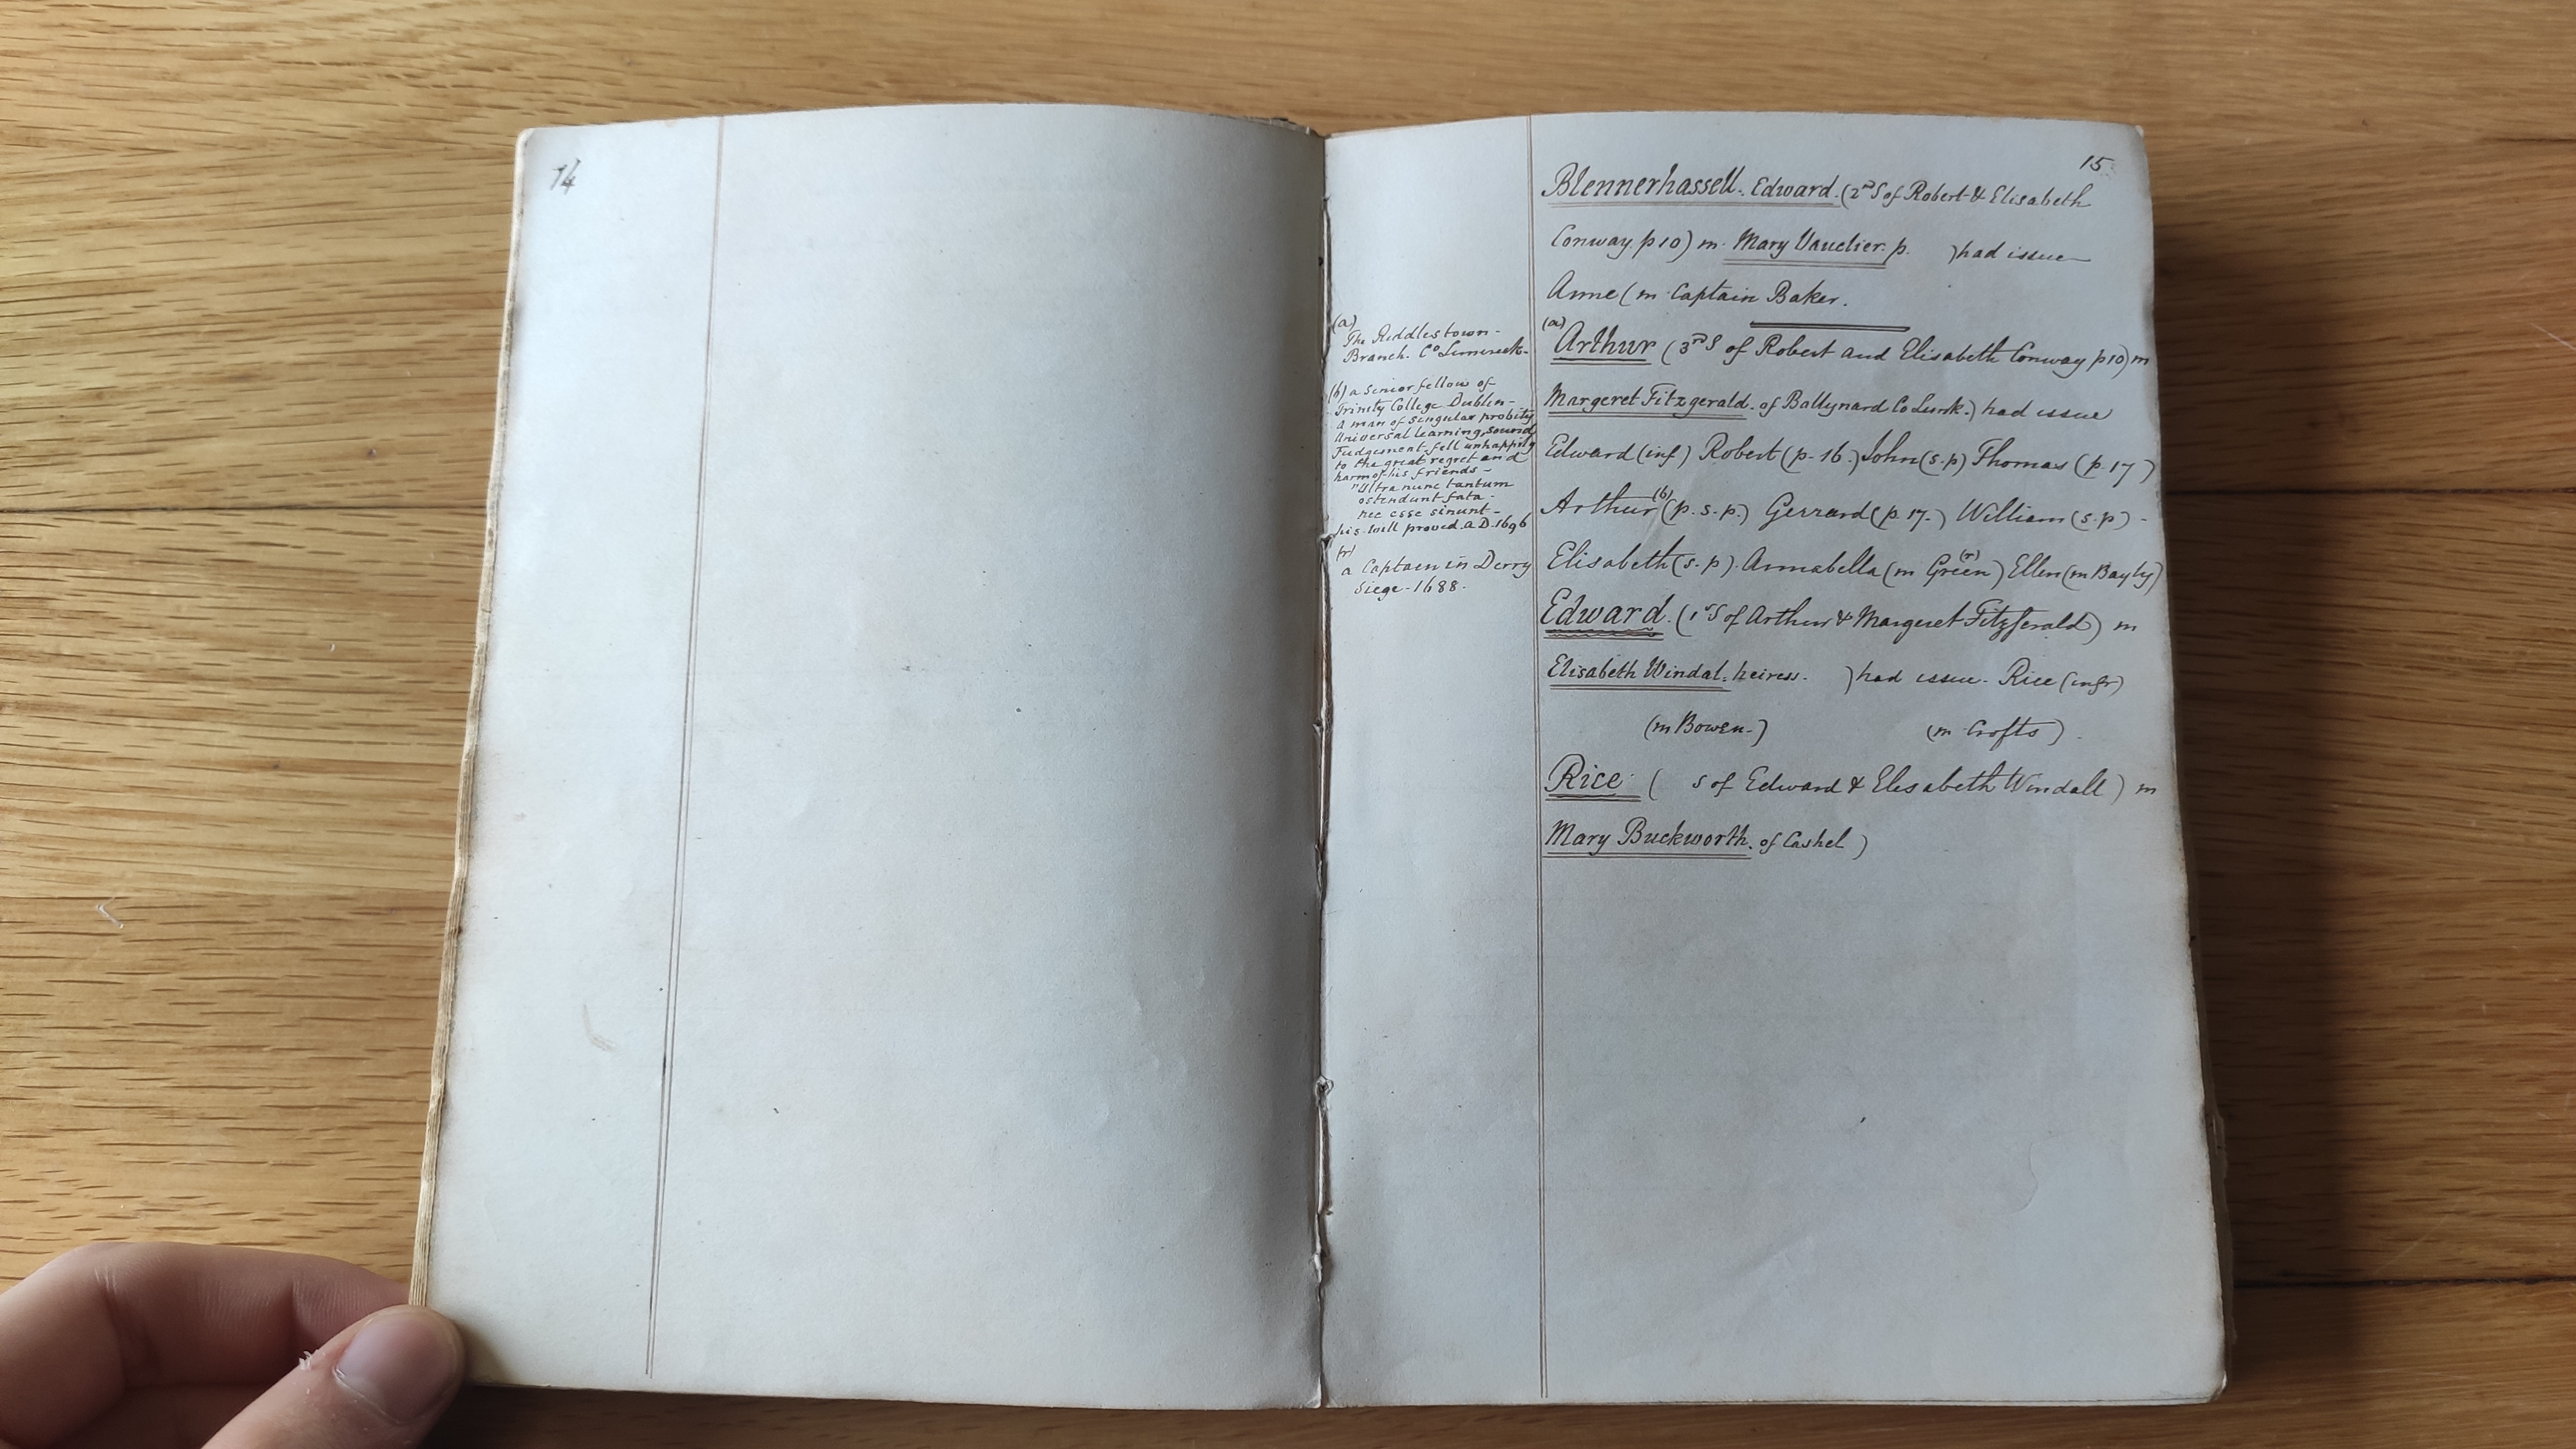 14
15
Blennerhassett. Edward. (2nd S of Robert & Elisabeth
Conway. p 10) m. Mary Vauclier. p. ) had issue
Anne (m Captain Baker.
(a)
The Riddlestown-
Branch. Co Limerick-
(b) a Senior fellow of
Trinity College Dublin-
a man of singular probity
Universal learning, sound
Judgement. fell unhappily
to the great regret and
harm of his friends-
"Ultra nunc tantum
ostendunt fata.
nec esse sinunt-
his will proved. A.D. 1696
(r)
a Captain in Derry
Siege-1688.
(a) Arthur (3rd S of Robert and Elisabeth Conway p 10) m
Margeret Fitzgerald. of Ballynard Co Limk.) had issue
Edward (inf) Robert (p. 16.) John (s.p) Thomas (p. 17)
Arthur (b) (p. s. p.) Gerrard (p. 17.) William (s.p) -
Elisabeth (s.p). Annabella (m Green (r)) Ellen (m Bayly)
Edward. (1st S of Arthur & Margeret Fitzgerald) m
Elisabeth Windal. heiress. ) had issue- Rice (infr)
(m Bowen.) (m Crofts).
Rice ( S of Edward & Elisabeth Windall) m
Mary Buckworth. of Cashel)